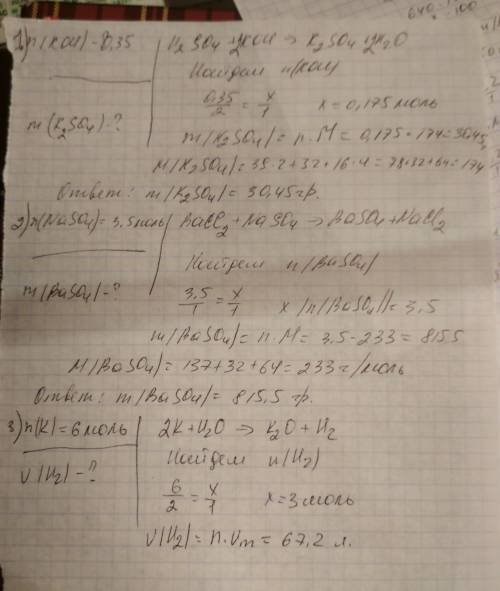 1) n(KOH) - 0,35
H2SO4 + 2KOH → K2SO4 + 2H2O
Найдем n(KOH)
0,35/2 = x/1 x = 0,175 моль
m(K2SO4) - ?
m(K2SO4) = n · M = 0,175 · 174 = 30,45
M(K2SO4) = 39·2+32+16·4 = 78+32+64 = 174
Ответ: m(K2SO4) = 30,45 гр.
2) n(NaSO4) = 3,5 моль
BaCl2 + NaSO4 → BaSO4 + NaCl2
Найдем n(BaSO4)
m(BaSO4) - ?
3,5/1 = x/1 x (n(BaSO4)) = 3,5
m(BaSO4) = n · M = 3,5 · 233 = 815,5
M(BaSO4) = 137 + 32 + 64 = 233 г/моль
Ответ: m(BaSO4) = 815,5 гр.
3) n(K) = 6 моль
2K + H2O → K2O + H2
Найдем n(H2)
V(H2) - ?
6/2 = x/1 x = 3 моль
V(H2) = n · Vm = 67,2 л.